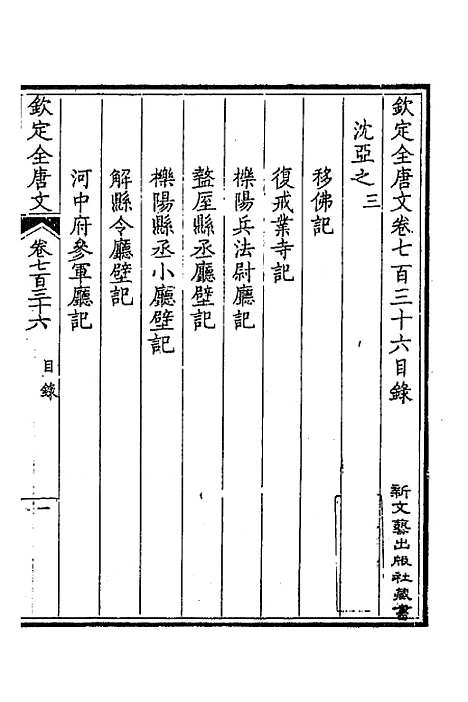 欽定全唐文卷七百三十六目錄
新文藝出版社藏書
沈亞之三
移佛記
復戒業寺記
櫟陽兵法尉廳記
盩厔縣丞廳壁記
櫟陽縣丞小廳壁記
解縣令廳壁記
河中府參軍廳記
欽定全唐文
卷七百三十六
目錄
一